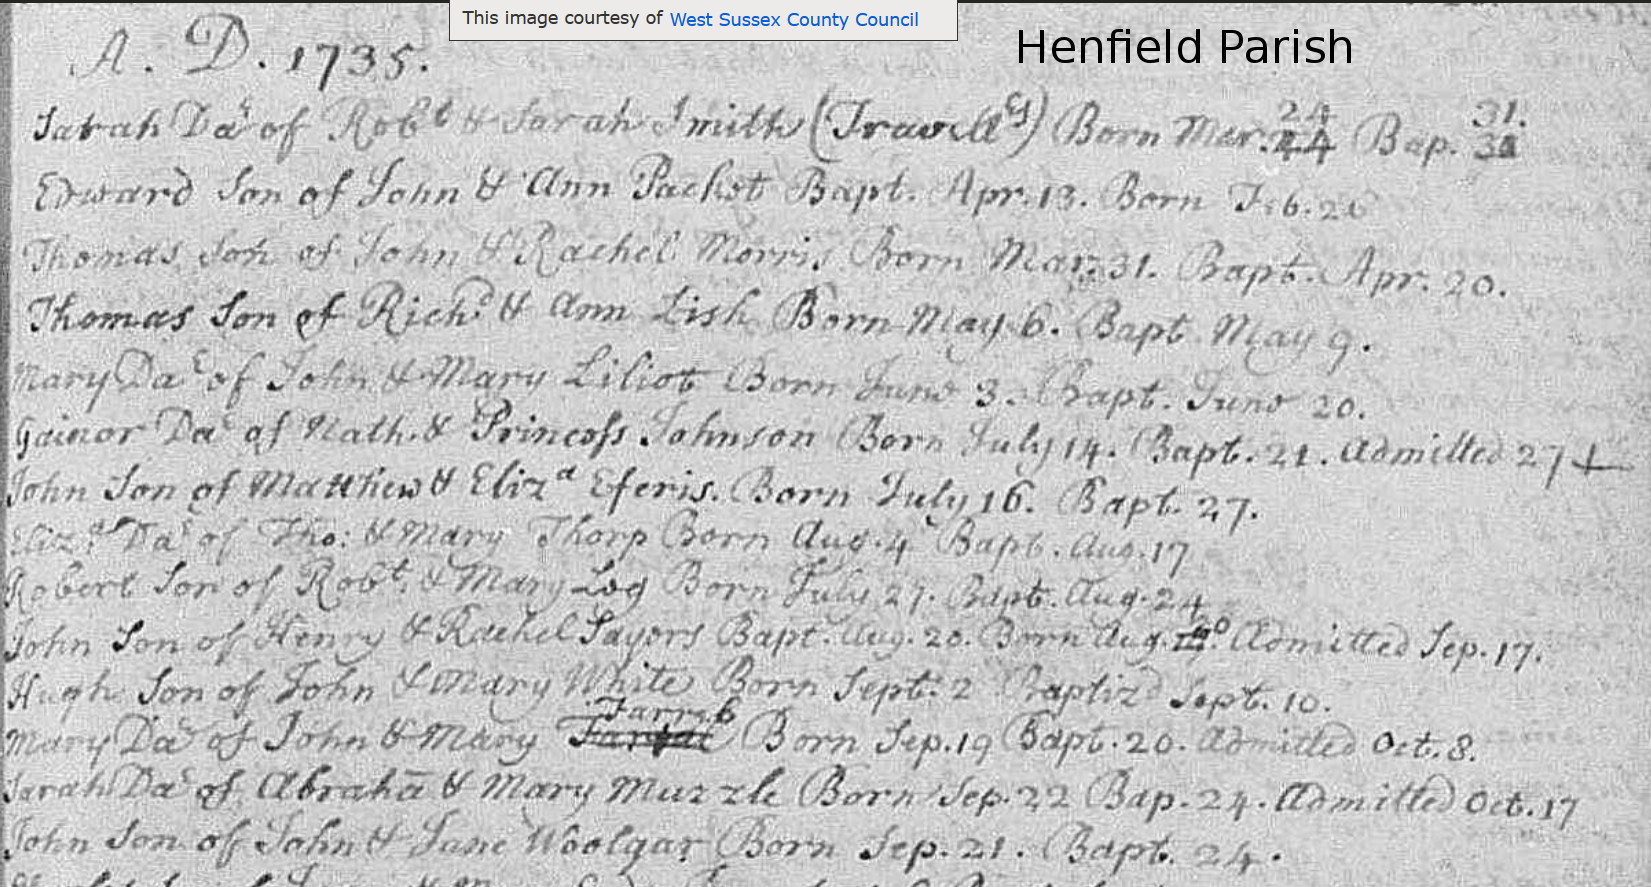 This image courtesy of West Sussex County Council
Henfield Parish
A. D. 1735.
Sarah Dar of Robt & Sarah Smith (Travellrs) Born Mar. 24 Bap. 31.
Edward Son of John & Ann Packet Bapt. Apr. 13. Born Feb.
Thomas Son of John & Rachel Morris Born Mar. 31. Bapt. Apr. 20.
Thomas Son of Richd & Ann Lish Born May 6. Bapt May 9.
Mary Dar of John & Mary Liliot Born June 3. Bapt. June 20.
Gainor Dar of Nath. & Princess Johnson Born July 14. Bapt. 21. Admitted 27
John Son of Matthew & Eliza Eferis. Born July 16. Bapt. 27.
Eliza Dar of Tho: & Mary Thorp Born Aug. 4 Bapt. Aug. 17
Robert Son of Robt & Mary Log Born July 27. Bapt. Aug. 24
John Son of Henry & Rachel Sayers Bapt. Aug. 20. Born Aug. Admitted Sep. 17.
Hugh Son of John & Mary White Born Sept. 2 Baptizd Sept. 10.
Mary Dar of John & Mary Born Sep. 19 Bapt. 20. Admitted Oct. 8.
Sarah Dar of Abrahā & Mary Muzzle Born Sep. 22 Bap. 24. Admitted Oct. 17
John Son of John & Jane Woolgar Born Sep. 21. Bapt. 24.